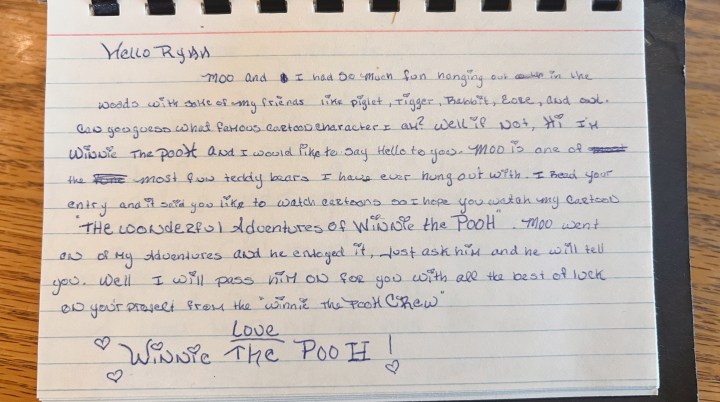 Hello Ryan
Moo and I had so much fun hanging out in the
woods with some of my friends like piglet, Tigger, Rabbit, Eore, and owl.
Can you guess what famous cartoon character I am? Well if not, Hi I'm
Winnie The pooH and I would like to say Hello to you. Moo is one of
the most fun teddy bears I have ever hung out with. I Read your
entry and it said you like to watch cartoons so I hope you watch my Cartoon
"THe wonderful Adventures of Winnie the PooH". Moo went
on of My Adventures and he enloged it, Just ask him and he will tell
you. Well I will pass him on for you with all the best of luck
on your project from the "winnie The PooH CRew"
Love
Winnie The PooH!